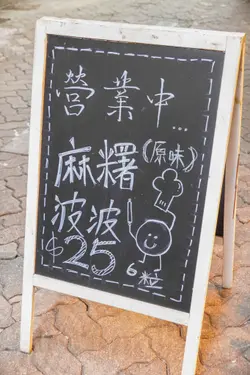 營業中...
麻糬(原味)
波波
$25
6粒